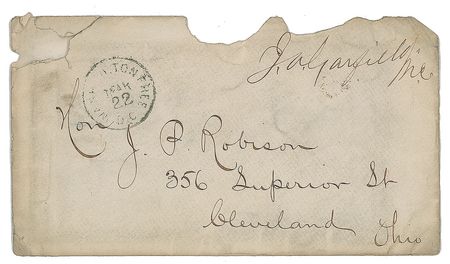 J. A. Garfield
M.C.
WASHINGTON FREE
MAR
22
D.C.
Hon J. P. Robison
356 Superior St
Cleveland
Ohio